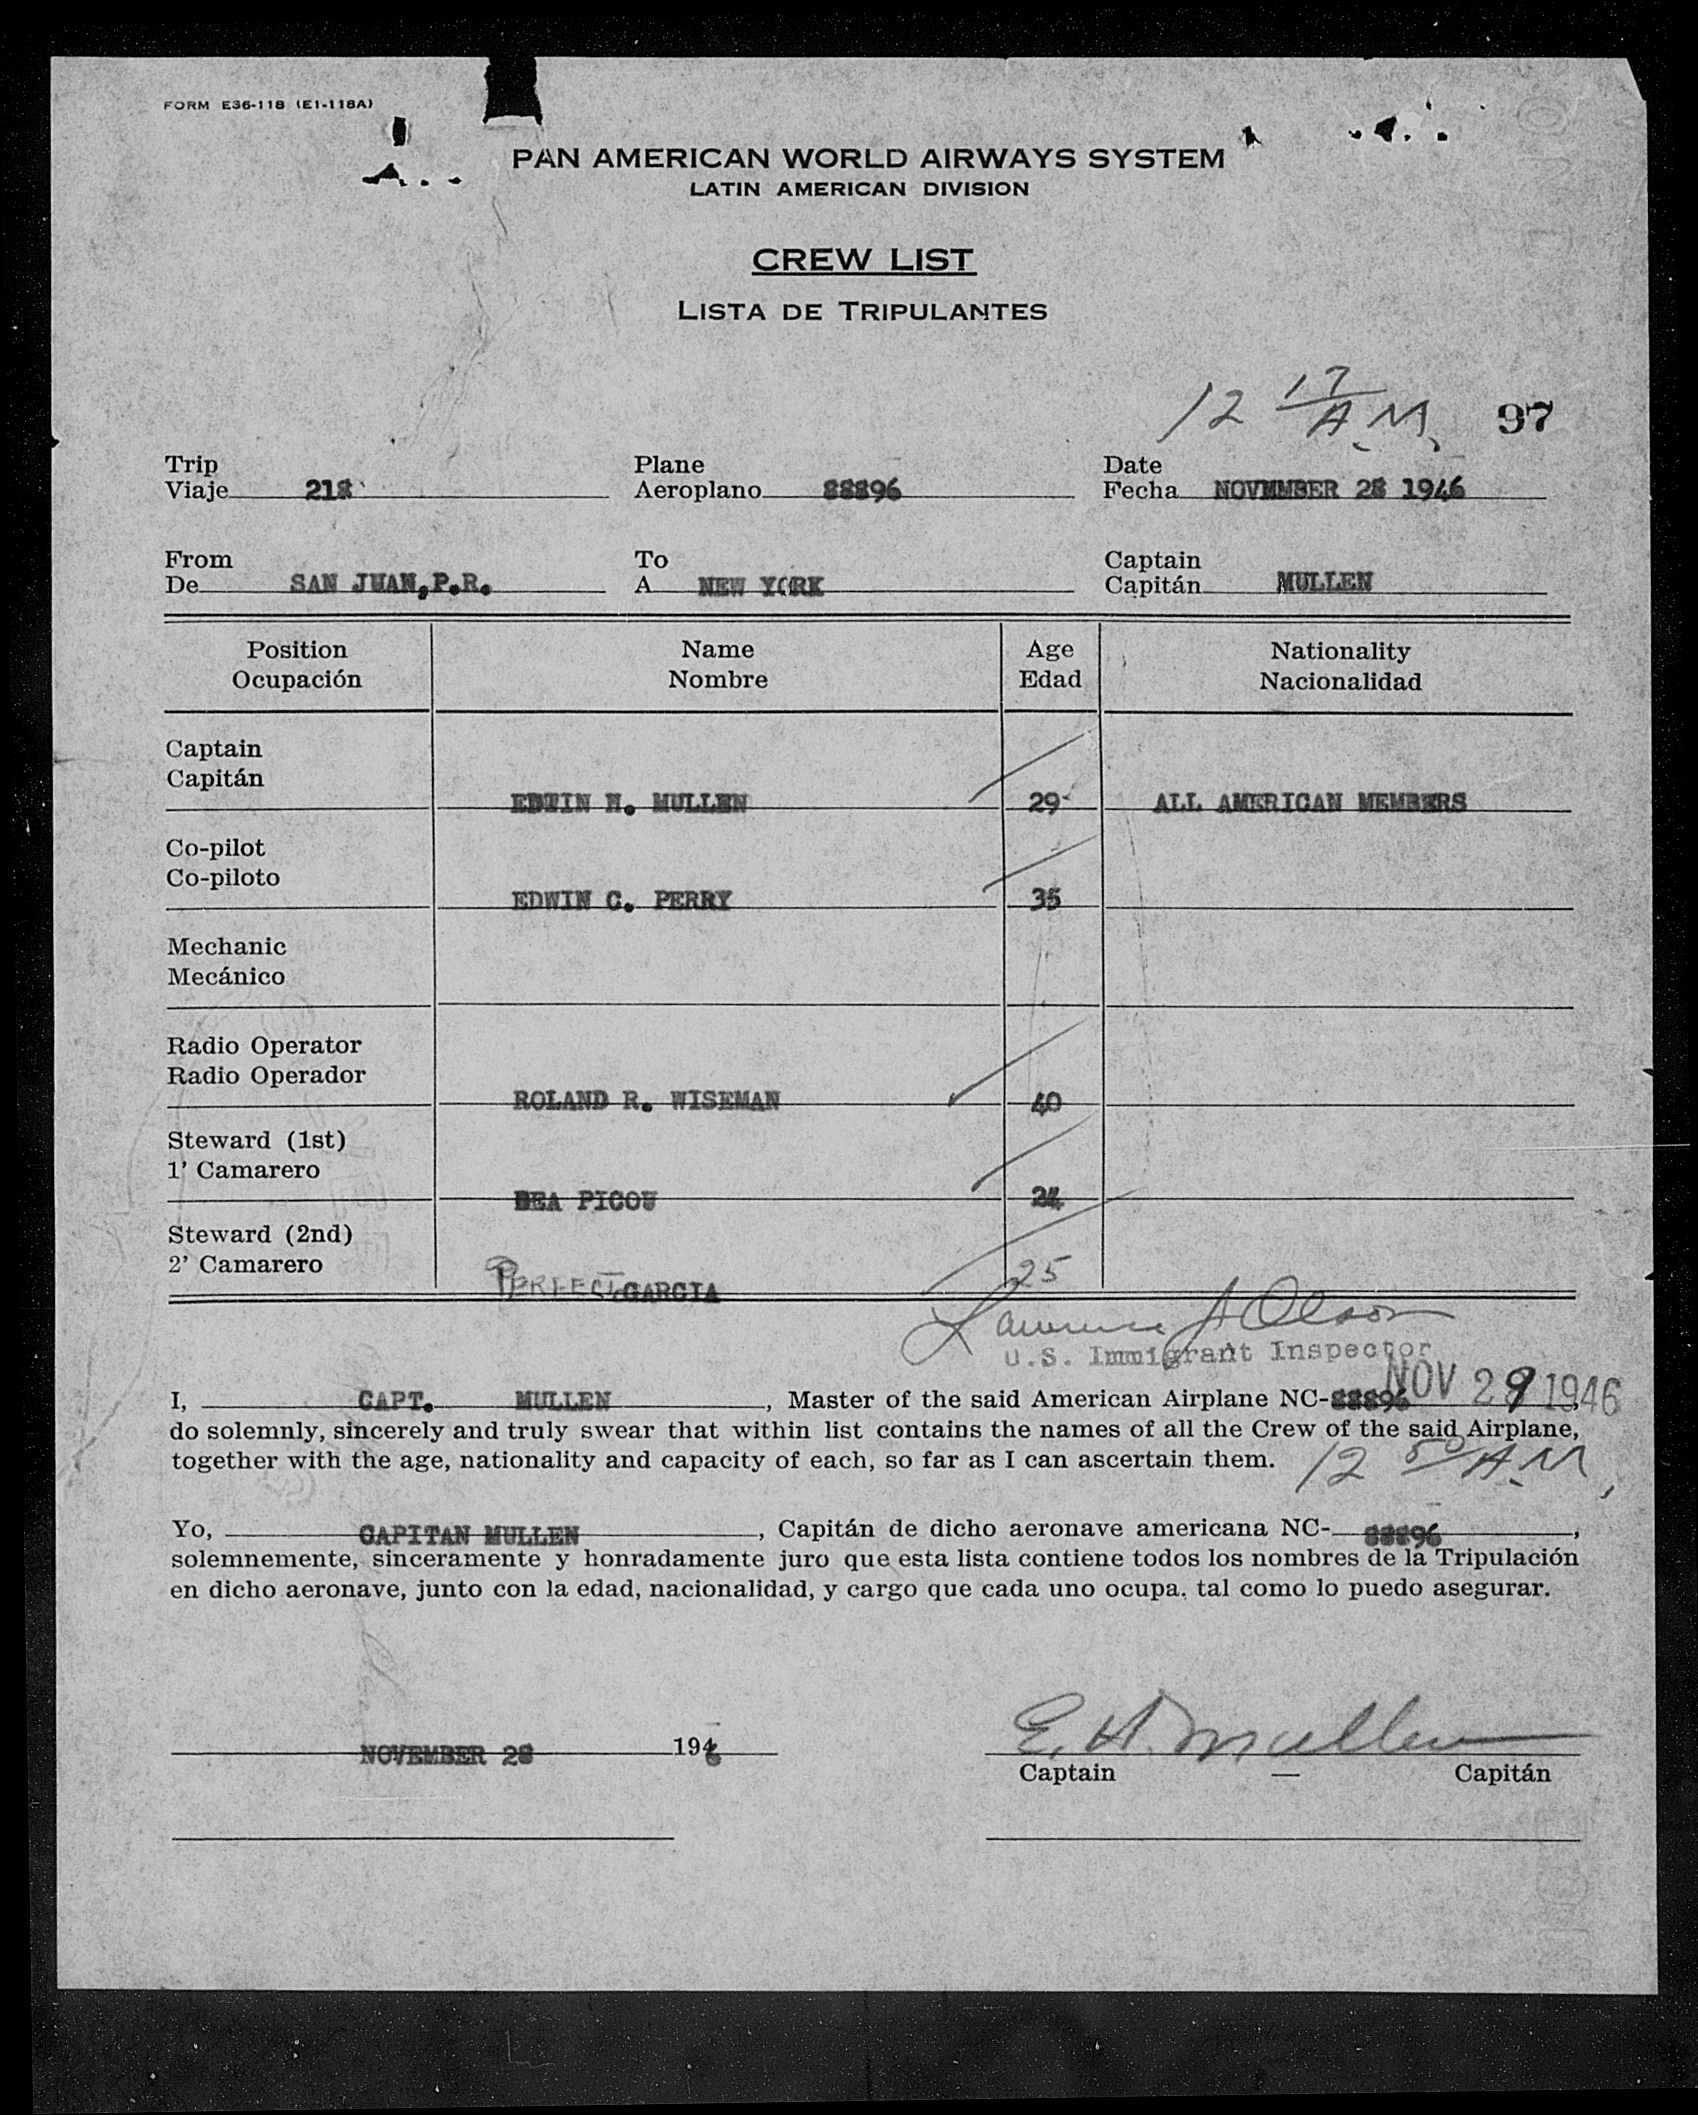 FORM E36-118 (E1-118A)
PAN AMERICAN WORLD AIRWAYS SYSTEM
LATIN AMERICAN DIVISION
CREW LIST
LISTA DE TRIPULANTES
12 17/A.M. 97
Trip Plane Date
Viaje 218 Aeroplano 88896 Fecha NOVEMMBER 28 1946
From To Captain
De SAN JUAN,P.R. A NEW YORK Capitán MULLEN
Position Name Age Nationality
Ocupación Nombre Edad Nacionalidad
Captain
Capitán
H. MULLEN 29 ALL AMERICAN MEMBERS
Co-pilot
Co-piloto
EDWIN C. PERRY 35
Mechanic
Mecánico
Radio Operator
Radio Operador
ROLAND R. WISEMAN 40
Steward (1st)
1' Camarero
BEA PICOU 24
Steward (2nd)
2' Camarero
PERFECTO GARCIA 25
Lawrence A Olson
U.S. Immigrant Inspector
NOV 29 1946
I, CAPT. MULLEN, Master of the said American Airplane NC-88896,
do solemnly, sincerely and truly swear that within list contains the names of all the Crew of the said Airplane,
together with the age, nationality and capacity of each, so far as I can ascertain them.
12 50/A.M.
Yo, CAPITAN MULLEN, Capitán de dicho aeronave americana NC-88896,
solemnemente, sinceramente y honradamente juro que esta lista contiene todos los nombres de la Tripulación
en dicho aeronave, junto con la edad, nacionalidad, y cargo que cada uno ocupa, tal como lo puedo asegurar.
NOVEMBER 28 1946 E. H. Mullen
Captain — Capitán